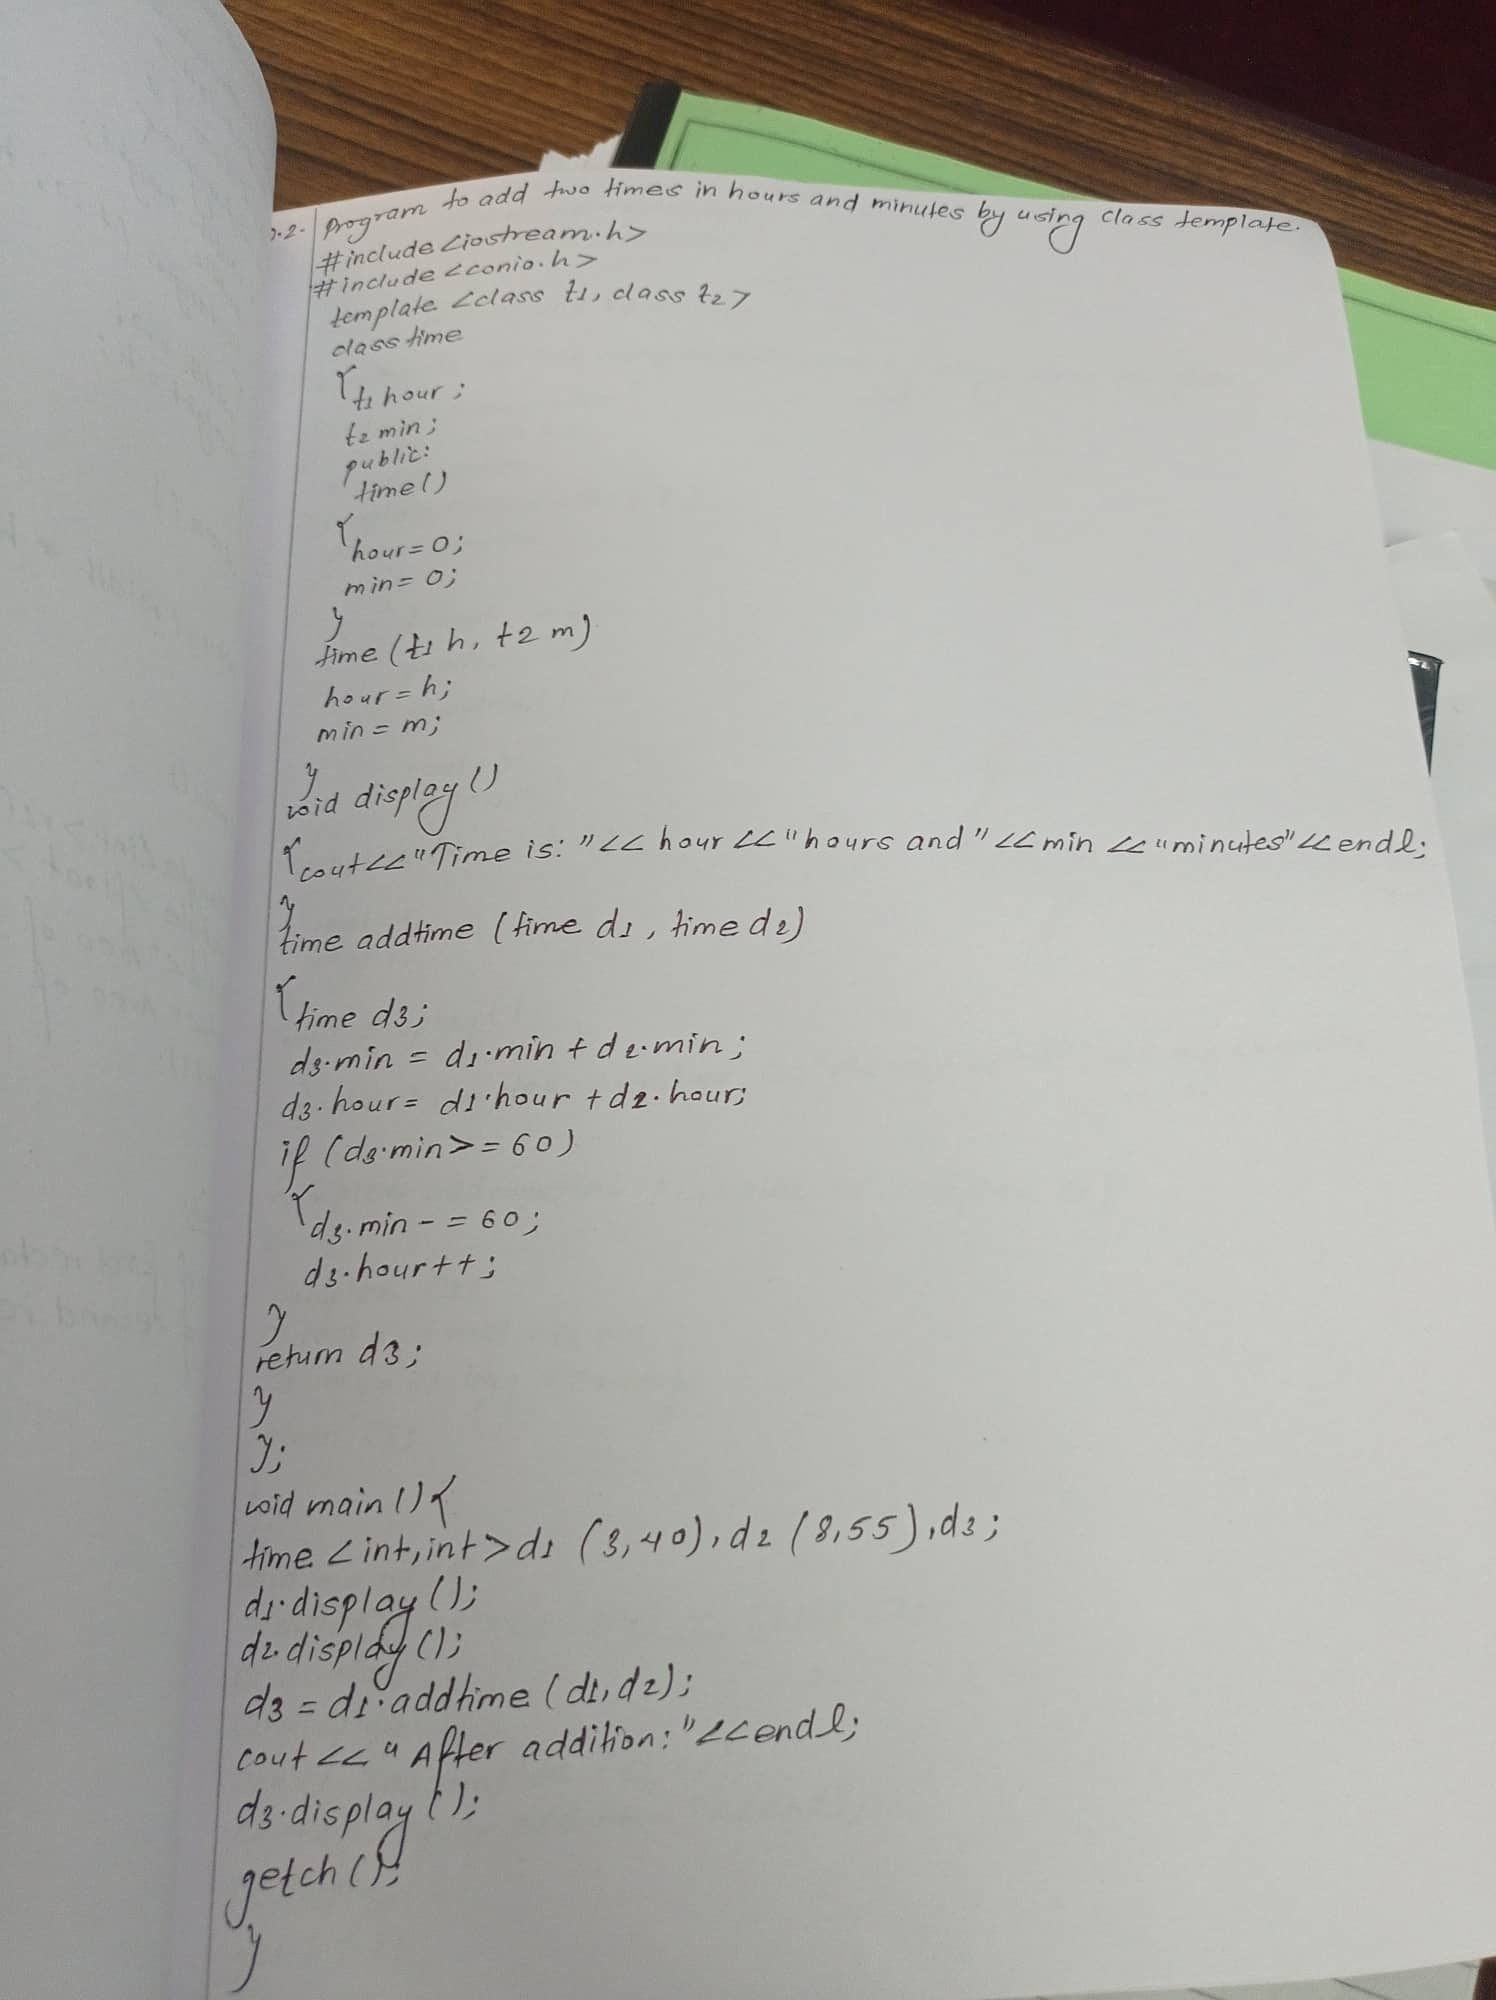 .2. Program to add two times in hours and minutes by using class template.
#include <iostream.h>
#include <conio.h>
template <class t1, class t2>
class time
{
t1 hour;
t2 min;
public:
time()
{
hour=0;
min=0;
}
time (t1 h, t2 m)
hour=h;
min=m;
}
void display()
{
cout<<"Time is: "<< hour <<"hours and "<<min <<"minutes"<<endl;
}
time addtime (time d1, time d2)
{
time d3;
d3.min = d1.min + d2.min;
d3.hour= d1.hour +d2.hour;
if (d3.min>=60)
{
d3.min -=60;
d3.hour++;
}
return d3;
}
};
void main(){
time <int,int>d1 (3,40),d2 (8,55),d3;
d1.display();
d2.display();
d3 = d1.addtime (d1,d2);
cout << "After addition:"<<endl;
d3.display();
getch();
}